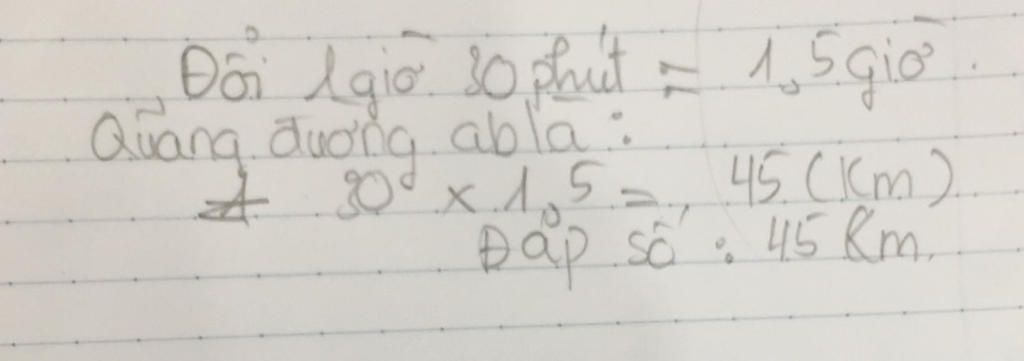 Đổi 1 giờ 30 phút = 1,5 giờ.
Quãng đường ab là:
30 x 1,5 = 45 (Km)
Đáp số: 45 Km.